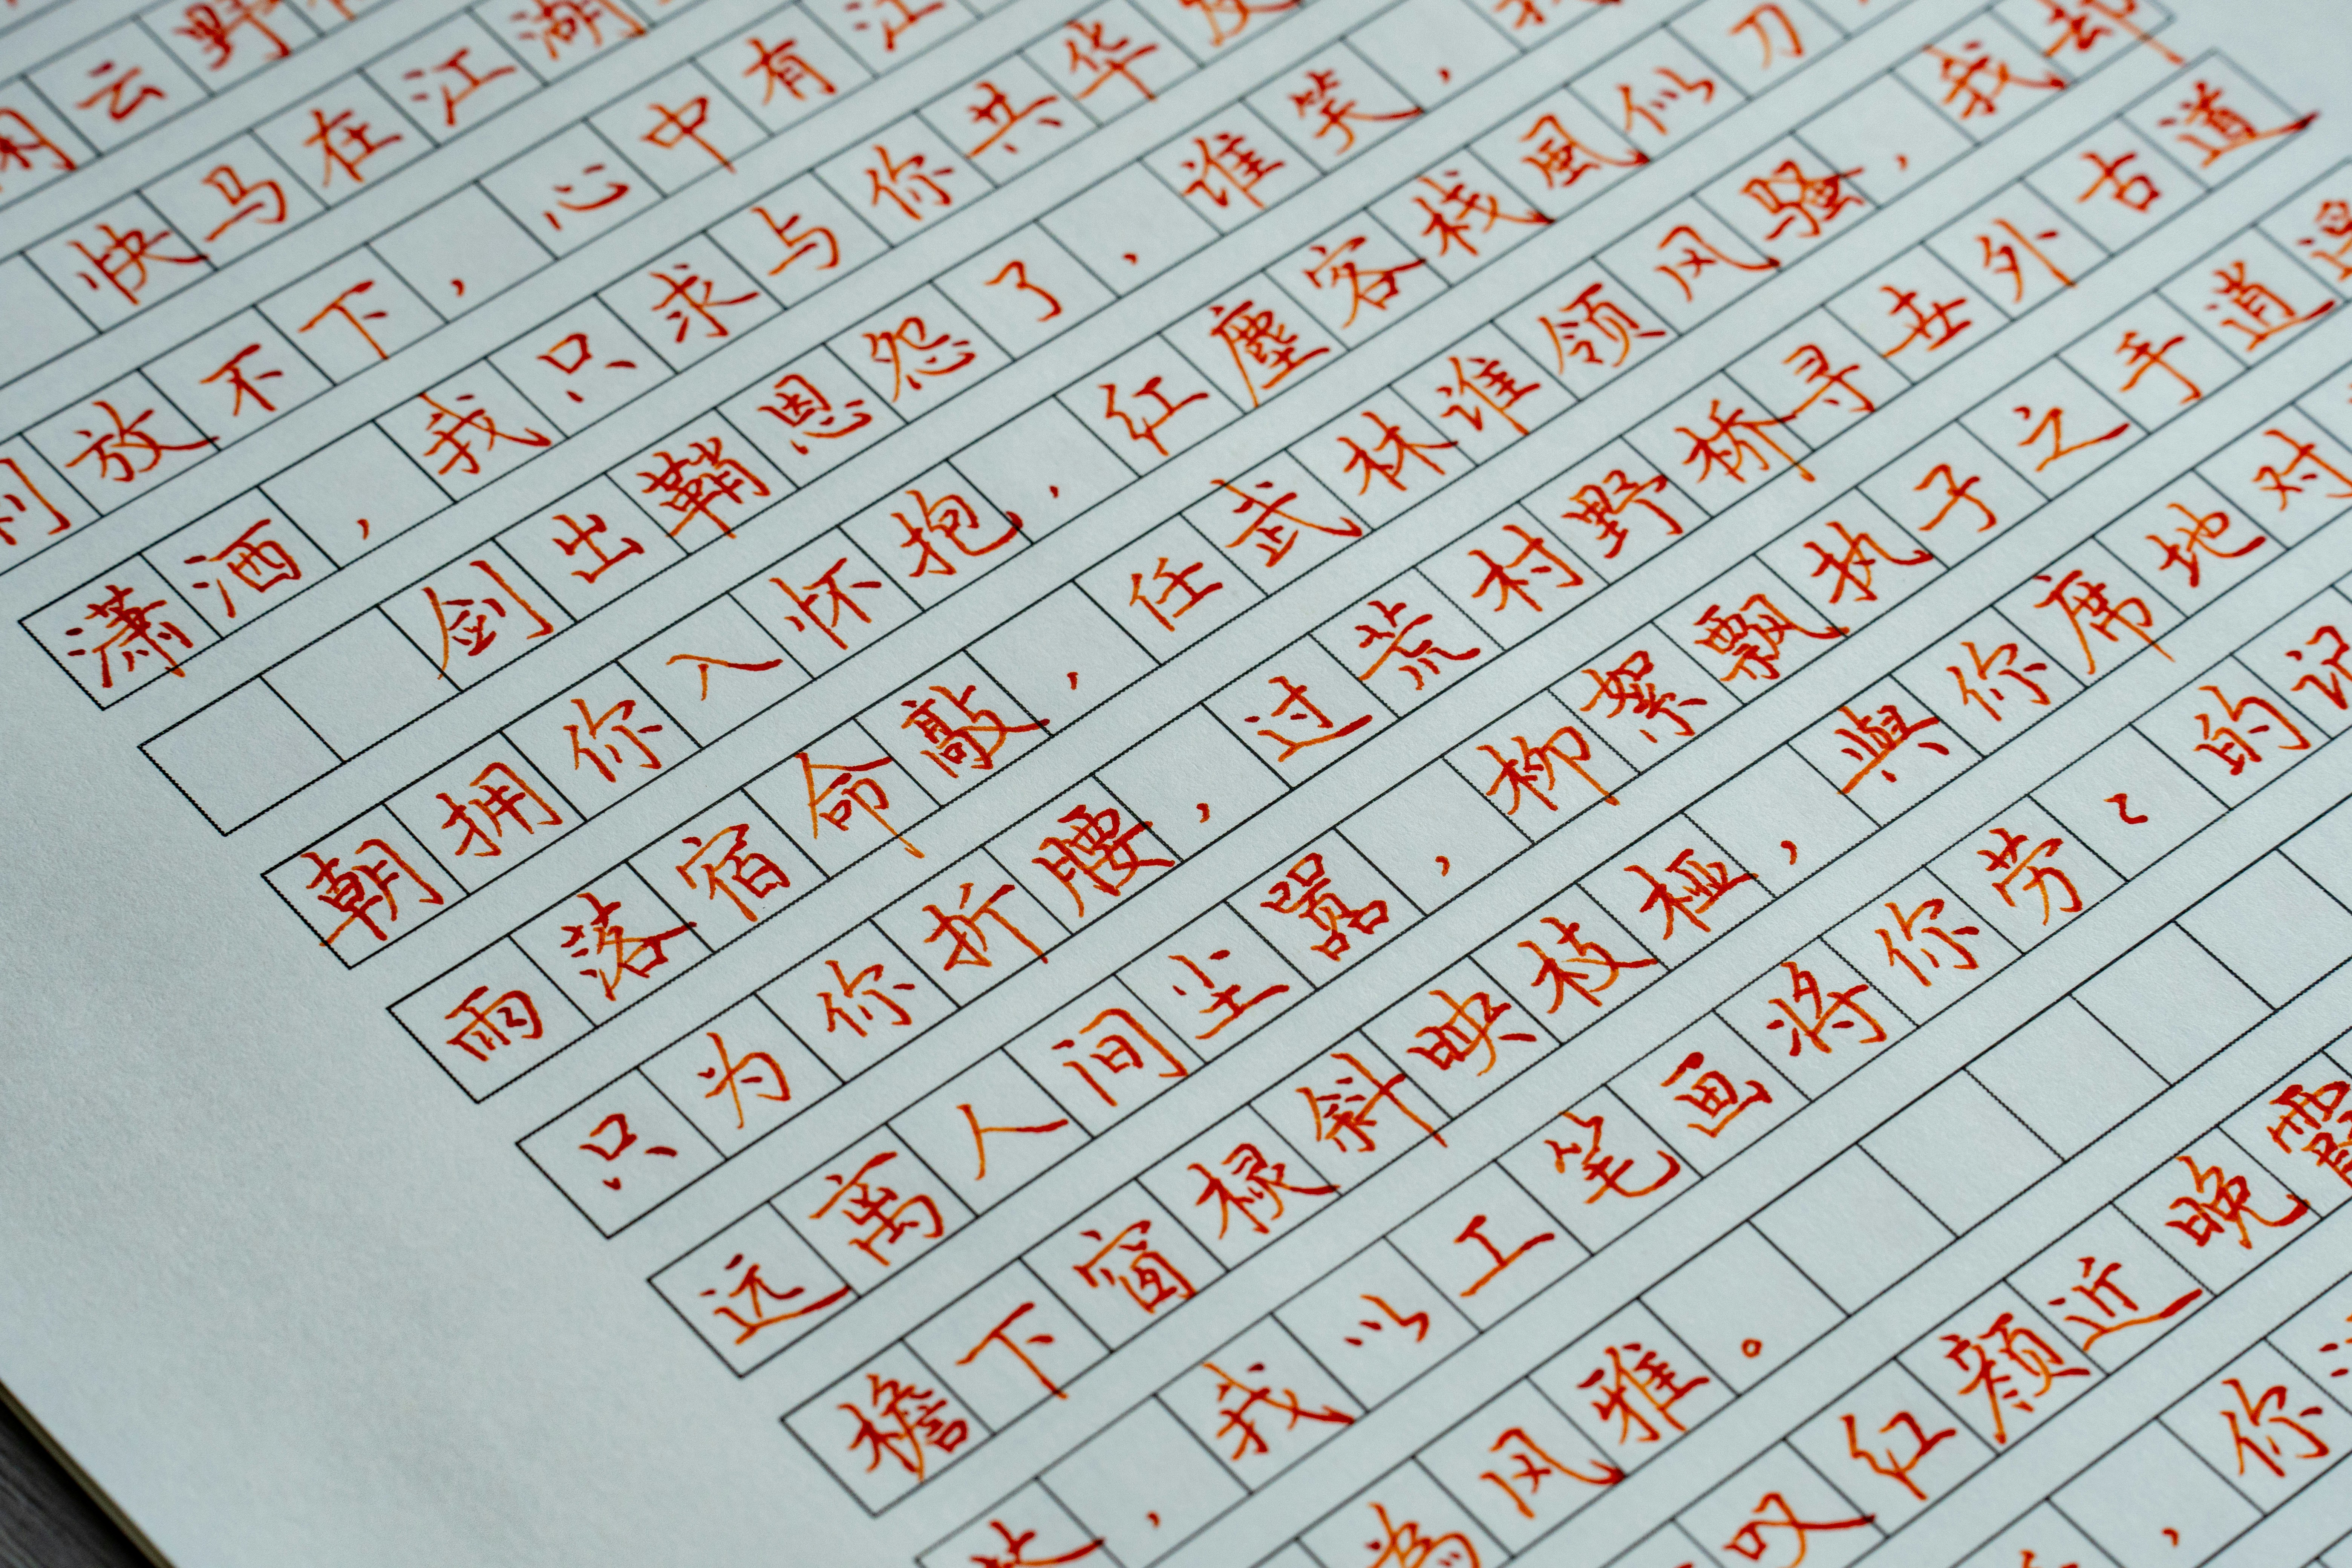 闲云野
快马在江湖
放不下，心中有江
潇洒，我只求与你共华发
剑出鞘恩怨了，谁笑，我
朝拥你入怀抱，红塵客栈風似刀
雨落宿命敲，任武林谁领风骚，我却
只为你折腰，过荒村野桥寻世外古道
远离人间尘嚣，柳絮飘执子之手逍
檐下窗棂斜映枝桠，與你席地对
，我以工笔画将你劳〻的记
為风雅。
叹红颜近晚霞
，你